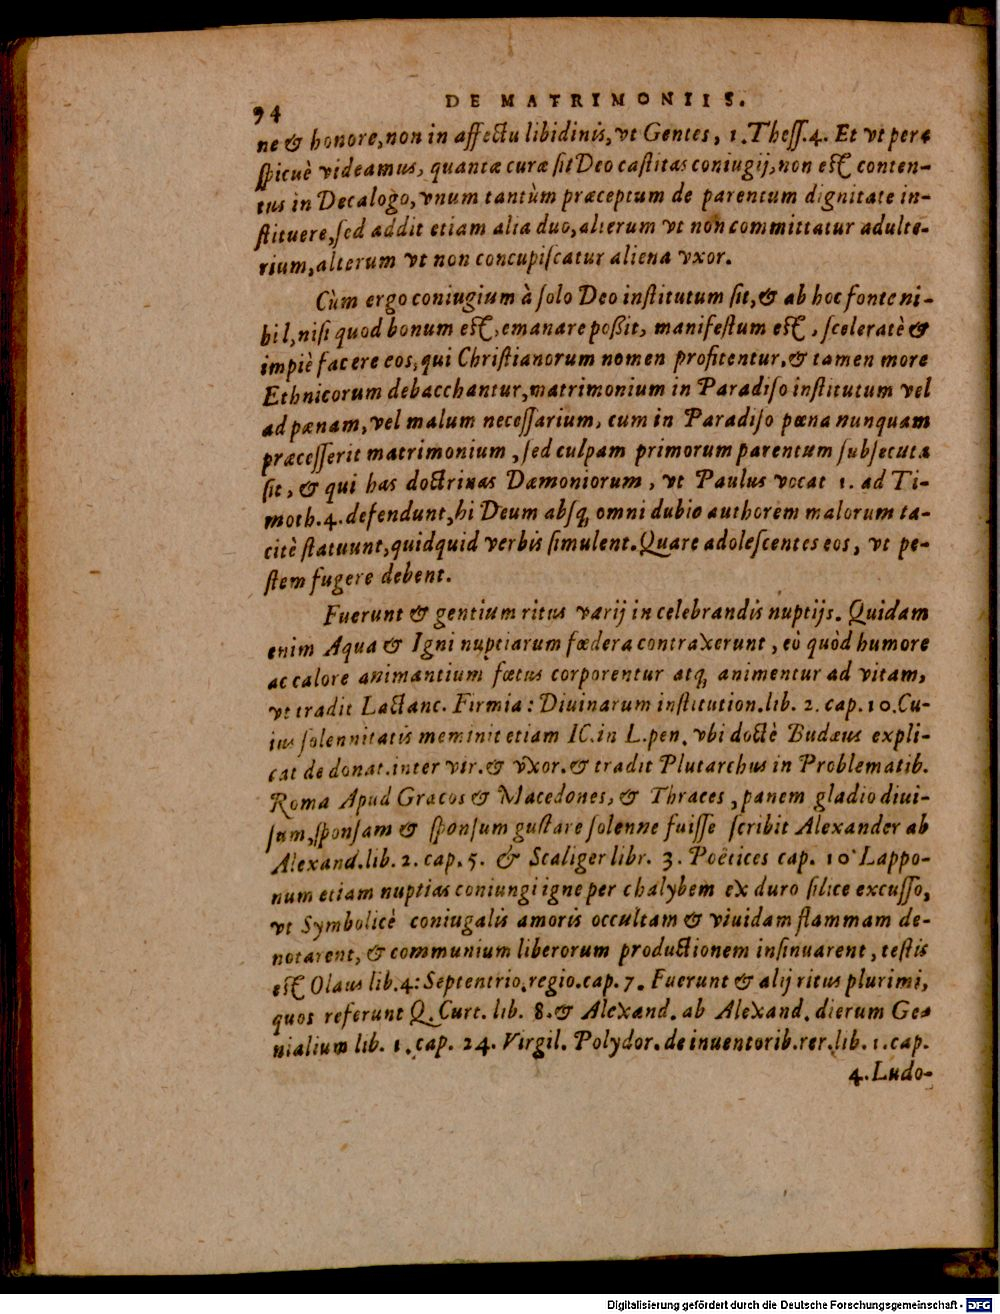 94
DE MATRIMONIIS.
ne & honore, non in affectu libidinis, vt Gentes, 1. Thess. 4. Et vt per-
spicuè videamus, quantæ curæ sit Deo castitas coniugij, non est conten-
tus in Decalogo, vnum tantùm præceptum de parentum dignitate in-
stituere, sed addit etiam alia duo, alterum vt non committatur adulte-
rium, alterum vt non concupiscatur aliena vxor.
Cùm ergo coniugium à solo Deo institutum sit, & ab hoc fonte ni-
hil, nisi quod bonum est, emanare poßit, manifestum est, sceleratè &
impiè facere eos, qui Christianorum nomen profitentur, & tamen more
Ethnicorum debacchantur, matrimonium in Paradiso institutum vel
ad pœnam, vel malum necessarium, cum in Paradiso pœna nunquam
præcesserit matrimonium, sed culpam primorum parentum subsecuta
sit, & qui has doctrinas Dæmoniorum, vt Paulus vocat 1. ad Ti-
moth. 4. defendunt, hi Deum absq; omni dubio authorem malorum ta-
citè statuunt, quidquid verbis simulent. Quare adolescentes eos, vt pe-
stem fugere debent.
Fuerunt & gentium ritus varij in celebrandis nuptijs. Quidam
enim Aqua & Igni nuptiarum fœdera contraxerunt, eò quòd humore
ac calore animantium fœtus corporentur atq; animentur ad vitam,
vt tradit Lactanc. Firmia: Diuinarum institution. lib. 2. cap. 10. Cu-
ius solennitatis meminit etiam IC. in L. pen. vbi doctè Budæus expli-
cat de donat. inter vir. & vxor. & tradit Plutarchus in Problematib.
Roma Apud Græcos & Macedones, & Thraces, panem gladio diui-
sum, sponsam & sponsum gustare solenne fuisse scribit Alexander ab
Alexand. lib. 2. cap. 5. & Scaliger libr. 3. Poëtices cap. 10 Lappo-
num etiam nuptias coniungi igne per chalybem ex duro silice excusso,
vt Symbolicè coniugalis amoris occultam & viuidam flammam de-
notarent, & communium liberorum productionem insinuarent, testis
est Olaus lib. 4: Septentrio. regio. cap. 7. Fuerunt & alij ritus plurimi,
quos referunt Q. Curt. lib. 8. & Alexand. ab Alexand. dierum Ge-
nialium lib. 1. cap. 24. Virgil. Polydor. de inuentorib. rer. lib. 1. cap.
4. Ludo-
Digitalisierung gefördert durch die Deutsche Forschungsgemeinschaft - DFG